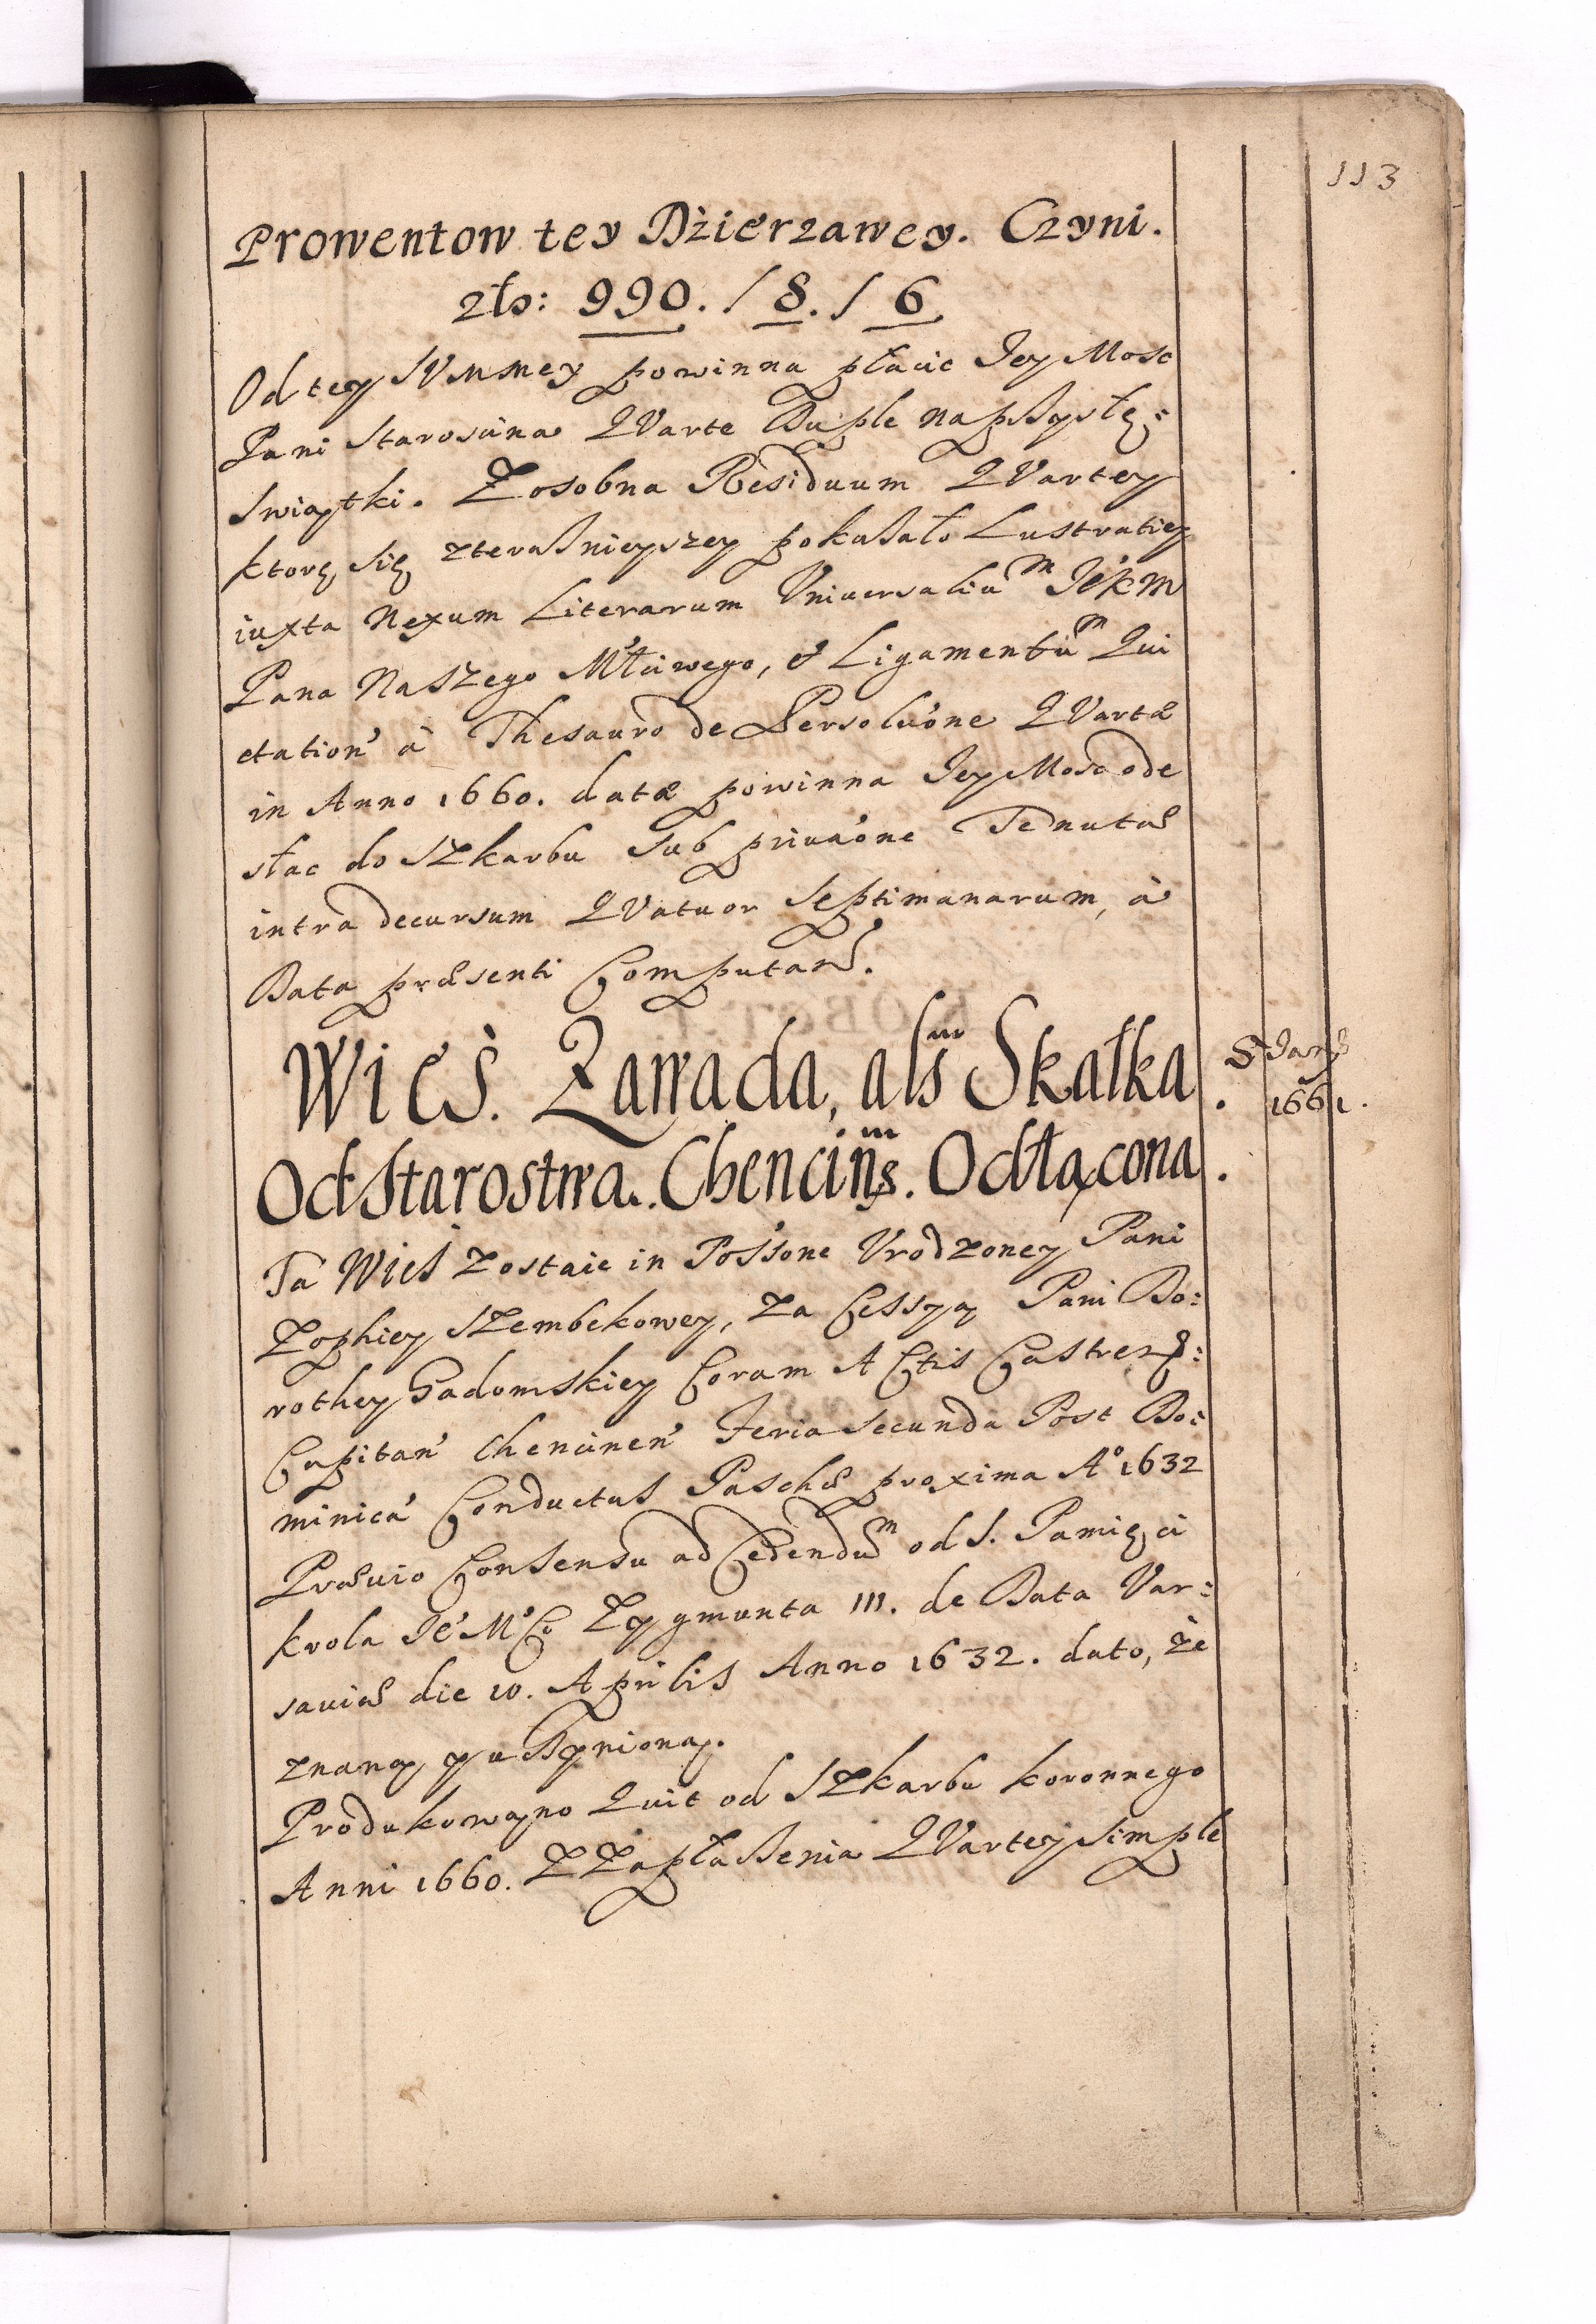 113
Prowentow tey Dźierzawey. Czyni.
zło: 990. / 8. / 6
Od tey Summey powinna płacic Jey Mosc
Pani Starosćina QVarte Duple na przyszłę:
Swiątki. Zosobna Residuum QVartey
ktorę się zteraznieyszey pokazało Lustratiey
iuxta Nexum Literarum Vniuersaliũm JéKM
Pana Naszego Mł́ciwego, et Ligamentũm Qui
etation' à Thesauro de Persolu'one QVartæ
in Anno 1660. datæ powinna Jey Mosc ode
słac do SZkarbu sub priua'one Tenutæ
intra decursum QVatuor Septimanarum, à
Data præsenti Computand.
Wieś. Zawada, als Skałka
Od Starostwa. Chencińs. Odłącona.
8 Janry
1661.
Ta Wieś zostaie in Poss'one Vrodzoney Pani
Zophiey Szembekowey, za Cessyą Pani Do:
rothey Gadomskiey Coram Actis Castrens:
Capitan' Chencinen' Feria Secunda Post Do:
minicá Conductus Paschæ proxima A° 1632
Præuio Consensu ad Cedendũm od S. Pamięci
krola Jé M Co Zygmunta III. de Data Var:
sauiæ die 10. Aprilis Anno 1632. dato, ze
znaną y uczynioną.
Produkowano Quit od SZkarbu koronnego
Anni 1660. Z Zapłazenia QVartey Simple